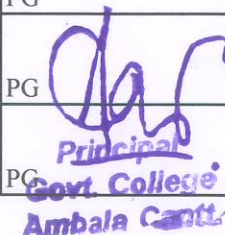 PG
PG
Principal
PG
Govt. College
Ambala Cantt.